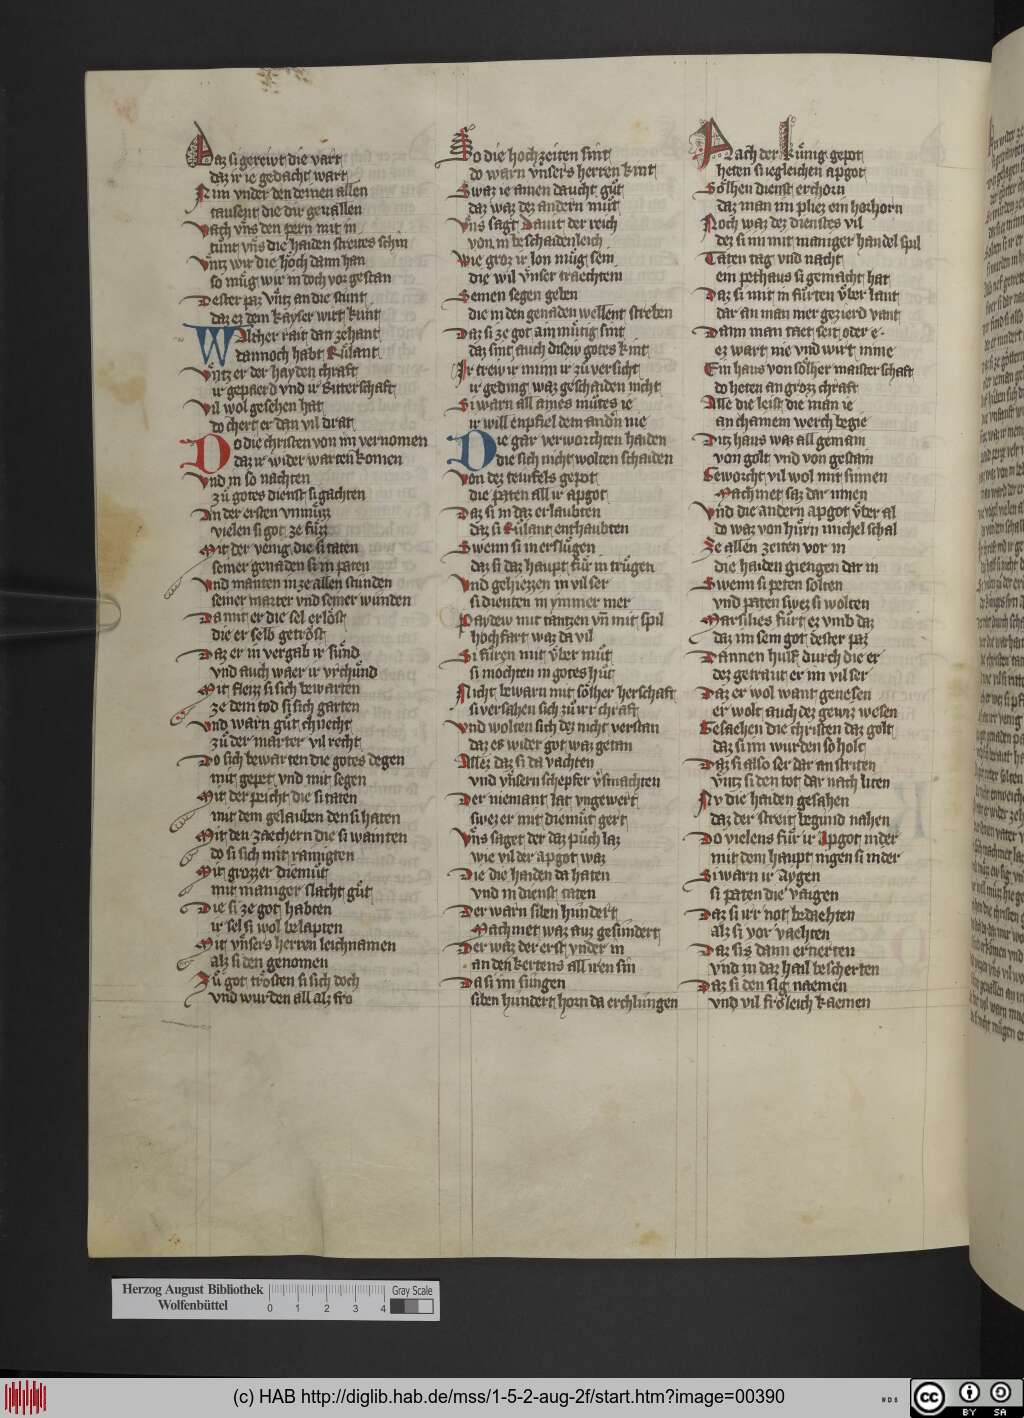 Daz si gereiwt die vart
daz ir ie gedacht wart
Nim vnder den deinen allen
tausent die dir geuallen
Vach vns den pern mit in
tuͦnt vns die haiden streites schin
Vntz wir die hoͤch dann han
so muͤg wir in doch vor gestan
Dester paz vntz an die stunt
daz ez dem kayser wirt kunt
Walther rait dan zehant
dannoch habt Ruͦlant
Vntz er der hayden chraft
ir gepaerd vnd ir Ritterschaft
Vil wol gesehen hat
do chert er dan vil drat
Do die christen von im vernomen
daz ir wider warten komen
Vnd in so nachten
zuͦ gotes dienst si gachten
An der ersten vnmuͤzz
vielen si got ze fuͤzz
Mit der venig die si taten
seiner genaden si in paten
Vnd manten in ze allen stunden
seiner marter vnd seiner wunden
Da mit er die sel erloͤst
die er selb getroͤst
Daz er in vergab ir suͤnd
vnd auch waer ir vrchuͤnd
Mit fleizz si sich bewarten
ze dem tod si sich garten
Vnd warn guͦt chnecht
zuͦ der marter vil recht
Do sich bewarten die gotes degen
mit gepet vnd mit segen
Mit der peicht die si taten
mit dem gelauben den si haten
Mit den zaechern die si wainten
do si sich mit rainigten
Mit grozzer diemuͤt
mit maniger slacht guͦt
Die si ze got habten
ir sel si wol belapten
Mit vnsers herren leichnamen
alz si den genomen
Zuͦ got troͤsten si sich doch
vnd wurden all alz fro
So die hochzeiten sint
do warn vnsers herren kint
Swaz ie ainen daucht guͦt
daz waz dez andern muͦt
Vns sagt Dauit der reich
von in beschaidenleich
Wie groz ir lon muͤg sein
die wil vnser traechtein
Seinen segen geben
die in den genaden wellent streben
Daz si ze got ainmuͤtig sint
daz sint auch disew gotes kint
Ir trew ir minn ir zuͦversicht
ir geding waz geschaiden nicht
Si warn all aines muͤtes ie
ir will enpfiel dem andern nie
Die gar verworchten haiden
die sich nicht wolten schaiden
Von dez teuifels gepot
die paten all ir apgot
Daz si in daz erlaubten
daz si Ruͦlant enthaubten
Swenn si in ersluͤgen
daz si daz haupt fuͤr in truͤgen
Vnd gehiezzen in vil ser
si dienten in ymmer mer
Paydew mit tantzen vnd mit spil
hochfart waz da vil
Si fuͦren mit vber muͦt
si mochten in gotes huͦt
Nicht bewarn mit soͤlher herschaft
si versahen sich zuͦ irr chraft
Vnd wolten sich dez nicht verstan
daz es wider got waz getan
Allez daz si da vachten
vnd vnsern schepfer vsmachten
Der niemant lat vngewert
swez er mit diemuͤt gert
Vns saget der daz puͦch laz
wie vil der apgot waz
Die die haiden da haten
vnd in dienst taten
Der warn siben hundert
Machmet waz auz gesundert
Der waz der erst vnder in
an den kertens all iren sin
Da si im sungen
siben hundert horn da erchlungen
Nach der kuͤnig gepot
heten si iegleichen apgot
Soͤlhen dienst erchorn
daz man im pliez ein herhorn
Noch waz dez dienstes vil
dez si im mit maniger handel spil
Taten tag vnd nacht
ein pethaus si gemacht hat
Daz si mit in fuͤrten vber lant
dar an man mer gezierd vant
Dann man taet seit oder e
ez wart nie vnd wirt nime
Ein haus von soͤlher maisterschaft
do heten an grozz chraft
Alle die leist die man ie
an chainem werch begie
Ditz haus waz all gemain
von golt vnd von gestain
Geworcht vil wol mit sinnen
Machmet saz dar innen
Vnd die andern apgot vber al
do waz von huͤrn michel schal
Ze allen zeiten vor in
die haiden giengen dar in
Swenn si peten solten
vnd paten swez si wolten
Marsilies fuͤrt ez vmb daz
daz im sein got dester paz
Dannen hulf durch die er
dez getraut er im vil ser
Daz er wol want genesen
er wolt auch dez gewiz wesen
Gesaehen die christen daz golt
daz si im wurden so holt
Daz si also ser dar an striten
vntz si den tot dar nach liten
Nv die haiden gesahen
daz der streit begund nahen
Do vielens fuͤr ir Apgot nider
mit dem haupt nigen si nider
Si warn ir aygen
si paten die vaigen
Daz si irr not bedaehten
alz si vor vaechten
Daz sis dann ernerten
vnd in daz hail bescherten
Daz si den sig naemen
vnd vil froͤleich kaemen
Herzog August Bibliothek
Wolfenbüttel
0 1 2 3 4
Gray Scale
(c) HAB http://diglib.hab.de/mss/1-5-2-aug-2f/start.htm?image=00390
cc BY SA